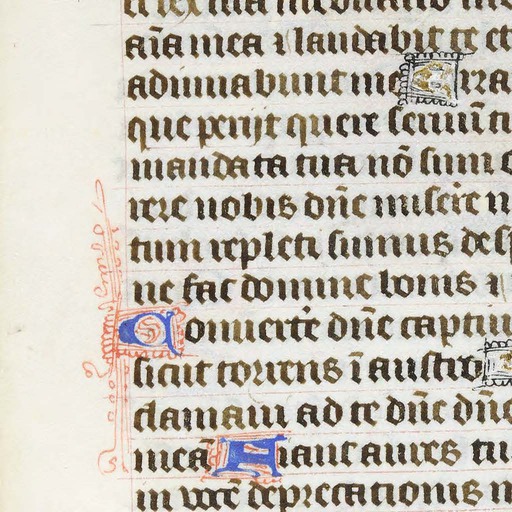 et lex tua meditatio me
aīa mea ⁊ laudabit te et
adiuuabunt me Erra
que perijt quere seruū tu
mandata tua nō sum o
rere nobis dn̄e misere n
tum repleti sumus desp
ne fac domine bonis ⁊
Conuerte dn̄e captiu
sicut torrens ī austro
clamaui ad te dn̄e dn̄e
meā Fiant aures tu
in vocē deprecationis m